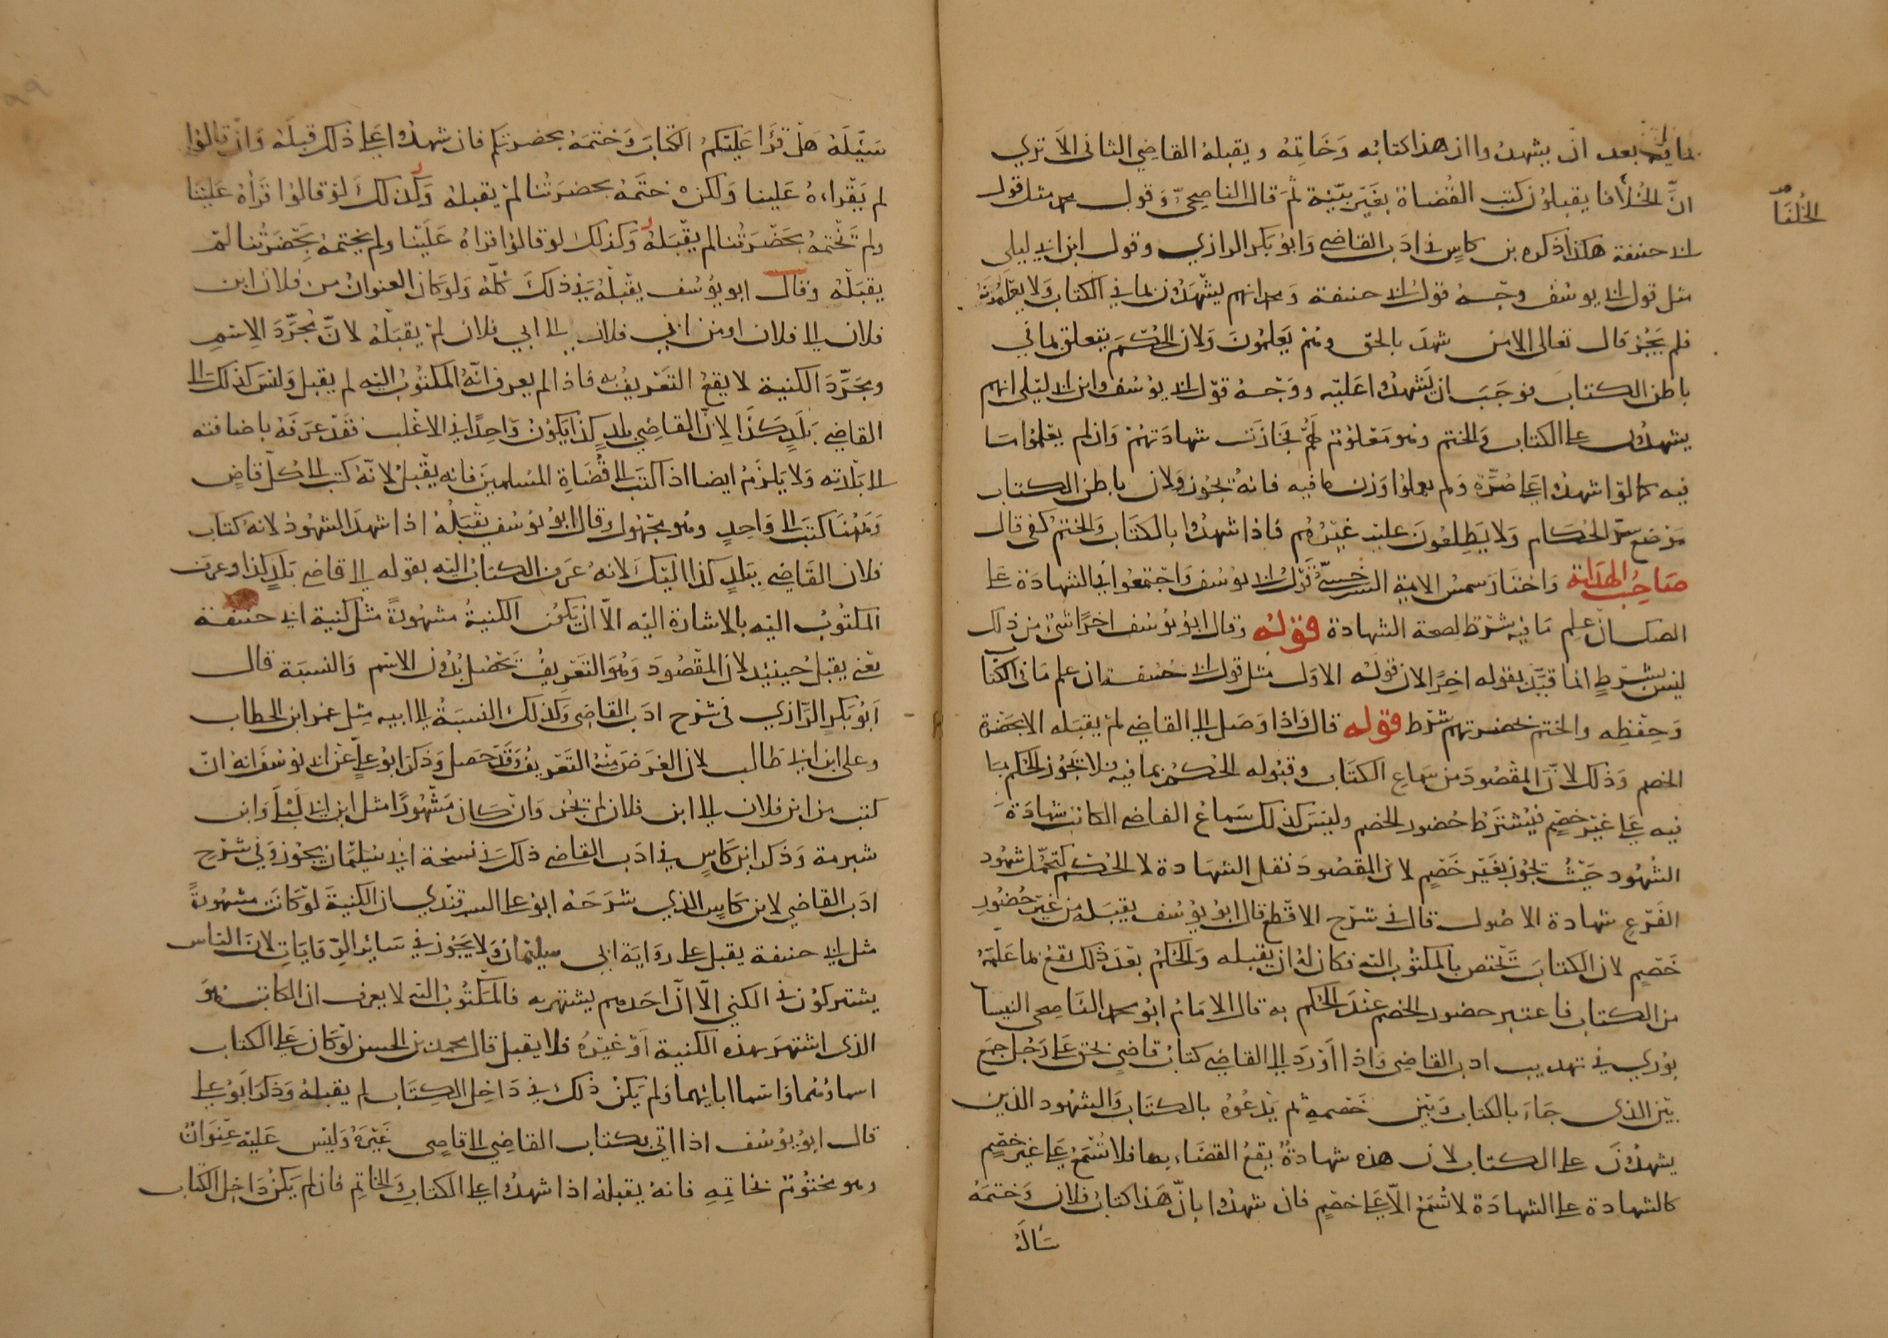 بما فيه بعد ان يشهدوا ان هذا كتابه وخاتمه ويقبله القاضي الثاني الا تري
انّ الخلفا يقبلون كتب القضاة بغير بيّنة ثم قال الناصحيّ وقول محمد مثل قول
ابي حنيفة هكذا ذكره بن كاسٍ في ادب القاضي وابو بكر الرازي وقول ابن ابي ليلي
مثل قول ابي يوسف وجه قول ابي حنيفة ومحمد انهم يشهدون بما في الكتاب ولا يعلمونه
فلم يجز قال تعالى الا من شهد بالحق وهم يعلمون ولان الحكم يتعلق بما في
باطن الكتاب فوجب ان يشهدوا عليه ووجه قول ابي يوسف وابن ابي ليلى انهم
يشهدون على الكتاب والختم وهو معلوم لهم فجازت شهادتهم وان لم يعلموا ما
فيه كما لو اشهدوا على صُرّة ولم يعلموا وزن ما فيه فانه يجوز ولان باطن الكتاب
موضع سرّ الحكام ولا يطلعون عليه غيرهم فاذا شهدوا بالكتاب والختم كفى قال
صاحب الهداية واختار شمس الايمة السرخسيّ قول ابي يوسف واجتمعوا في الشهادة على
الصك انّ علم ما فيه شرط لصحة الشهادة قوله وقال ابو يوسف اخرًا شئ من ذلك
ليس بشرطٍ انما قيّد بقوله اخرًا لان قوله الاول مثل قول ابي حنيفة ان علم ما في الكتا
وحفظه والختم بحضرتهم شرط قوله قال واذا وصل الى القاضي لم يقبله الا بحضرة
الخصم وذلك لان المقصود من سماع الكتاب وقبوله الحكم بما فيه فلا يجوز الحكم بما
فيه على غير خصم فيشترط حضور الخصم وليس كذلك سماع القاضي الكاتب شهادة
الشهود حيث يجوز بغير خصم لان المقصود نقل الشهادة لا الحكم كتحمّل شهود
الفرع شهادة الاصول قال في شرح الاقطع قال ابو يوسف يقبله من غير حضور
خصم لان الكتاب يختص بالمكتوب اليه فكان له ان يقبله والحكم بعد ذلك يقع بما علمه
من الكتاب فاعتبر حضور الخصم عند الحكم به قال الامام ابو محمد الناصحي النيسا
بوري في تهذيب ادب القاضي واذا اورد الى القاضي كتاب قاضٍ بحق على رجل جمع
بين الذي جاء بالكتاب وبين خصمه ثم يدعوه بالكتاب والشهود الذين
يشهدون على الكتاب لان هذه شهادة يقع القضاء بها فلا تسمع على غير خصم
كالشهادة على الشهادة لا تسمع الّا على خصم فان شهدوا بانّ هذا كتاب فلان وختمه
سَاَلَهُ
الخُلفَا
سيئله هل قرا عليكم الكتاب وختمه بحضرتكم فان شهدوا على ذلك قبله وان قالوا
لم يقراه علينا ولكن ختمه بحضرتنا لم يقبله وكذلك لو قالوا قراه علينا
ولم يختمه بحضرتنا لم يقبله وكذلك لو قالوا قراه علينا ولم يختمه بحضرتنا لم
يقبله وقال ابو يوسف يقبله في ذلك كله ولو كان العنوان من فلان ابن
فلان الى فلان او من ابي فلان الى ابي فلان لم يقبله لانّ مجرّد الاسم
ومجرّد الكنية لا يقع التعريف به فاذا لم يعرف انه المكتوب اليه لم يقبل وليس كذلك الى
القاضي ببلد كذا لان القاضي ببلد كذا يكون واحدًا في الاغلب فقد عرفه باضافته
الى بلدته ولا يلزم ايضا اذا كتب الى قضاة المسلمين فانه يقبل لانه كتب الى كل قاضٍ
وههنا كتب الى واحدٍ وهو مجهول وقال ابو يوسف يقبله اذا شهد الشهود لانه كتاب
فلان القاضي ببلد كذا اليك لانه عرف الكتاب اليه بقوله الى قاضي بلد كذا وعرف
المكتوب اليه بالاشارة اليه الّا ان يكون الكنية مشهورةً مثل كنية ابي حنيفة
يعني يقبل حينئذ لان المقصود وهو التعريف يحصل بدون الاسم والنسبة قال
ابو بكر الرازي في شرح ادب القاضي وكذلك النسبة الى ابيه مثل عمر ابن الخطاب
وعلي ابن ابي طالب لان الغرض منه التعريف وقد حصل وذكر ابو علي عن ابي يوسف انه ان
كتب من ابن فلان الى ابن فلان لم يجز وان كان مشهورًا مثل ابن ابي ليلى وابن
شبرمة وذكر ابن كاسٍ في ادب القاضي ذلك في نسخة ابي سليمان يجوز وفي شرح
ادب القاضي لابن كاس الذي شرحه ابو علي السمرقندي ان الكنية لو كانت مشهورةً
مثل ابي حنيفة يقبل على رواية ابي سليمان ولا يجوز في سائر الروايات لان الناس
يشتركون في الكني الّا انّ احدهم يشتهر به فالمكتوب اليه لا يعرف ان الكاتب هو
الذي اشتهر بهذه الكنية او غيره فلا يقبل قال محمد بن الحسن لو كان على الكتاب
اسماوهما واسما ابائهما ولم يكن ذلك في داخل الكتاب لم يقبله وذكر ابو علي
قال ابو يوسف اذا اتى بكتاب القاضي الى قاضي غيره وليس عليه عنوان
وهو مختوم بخاتمه فانه يقبله اذا شهدوا على الكتاب والخاتم فان لم يكن داخل الكتاب